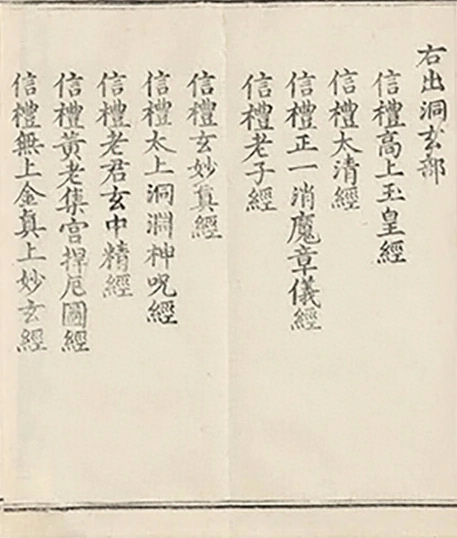 右出洞玄部
信禮高上玉皇經
信禮太清經
信禮正一消魔章儀經
信禮老子經
信禮玄妙真經
信禮太上洞淵神呪經
信禮老君玄中精經
信禮黃老集宫捍厄圖經
信禮無上金真上妙玄經